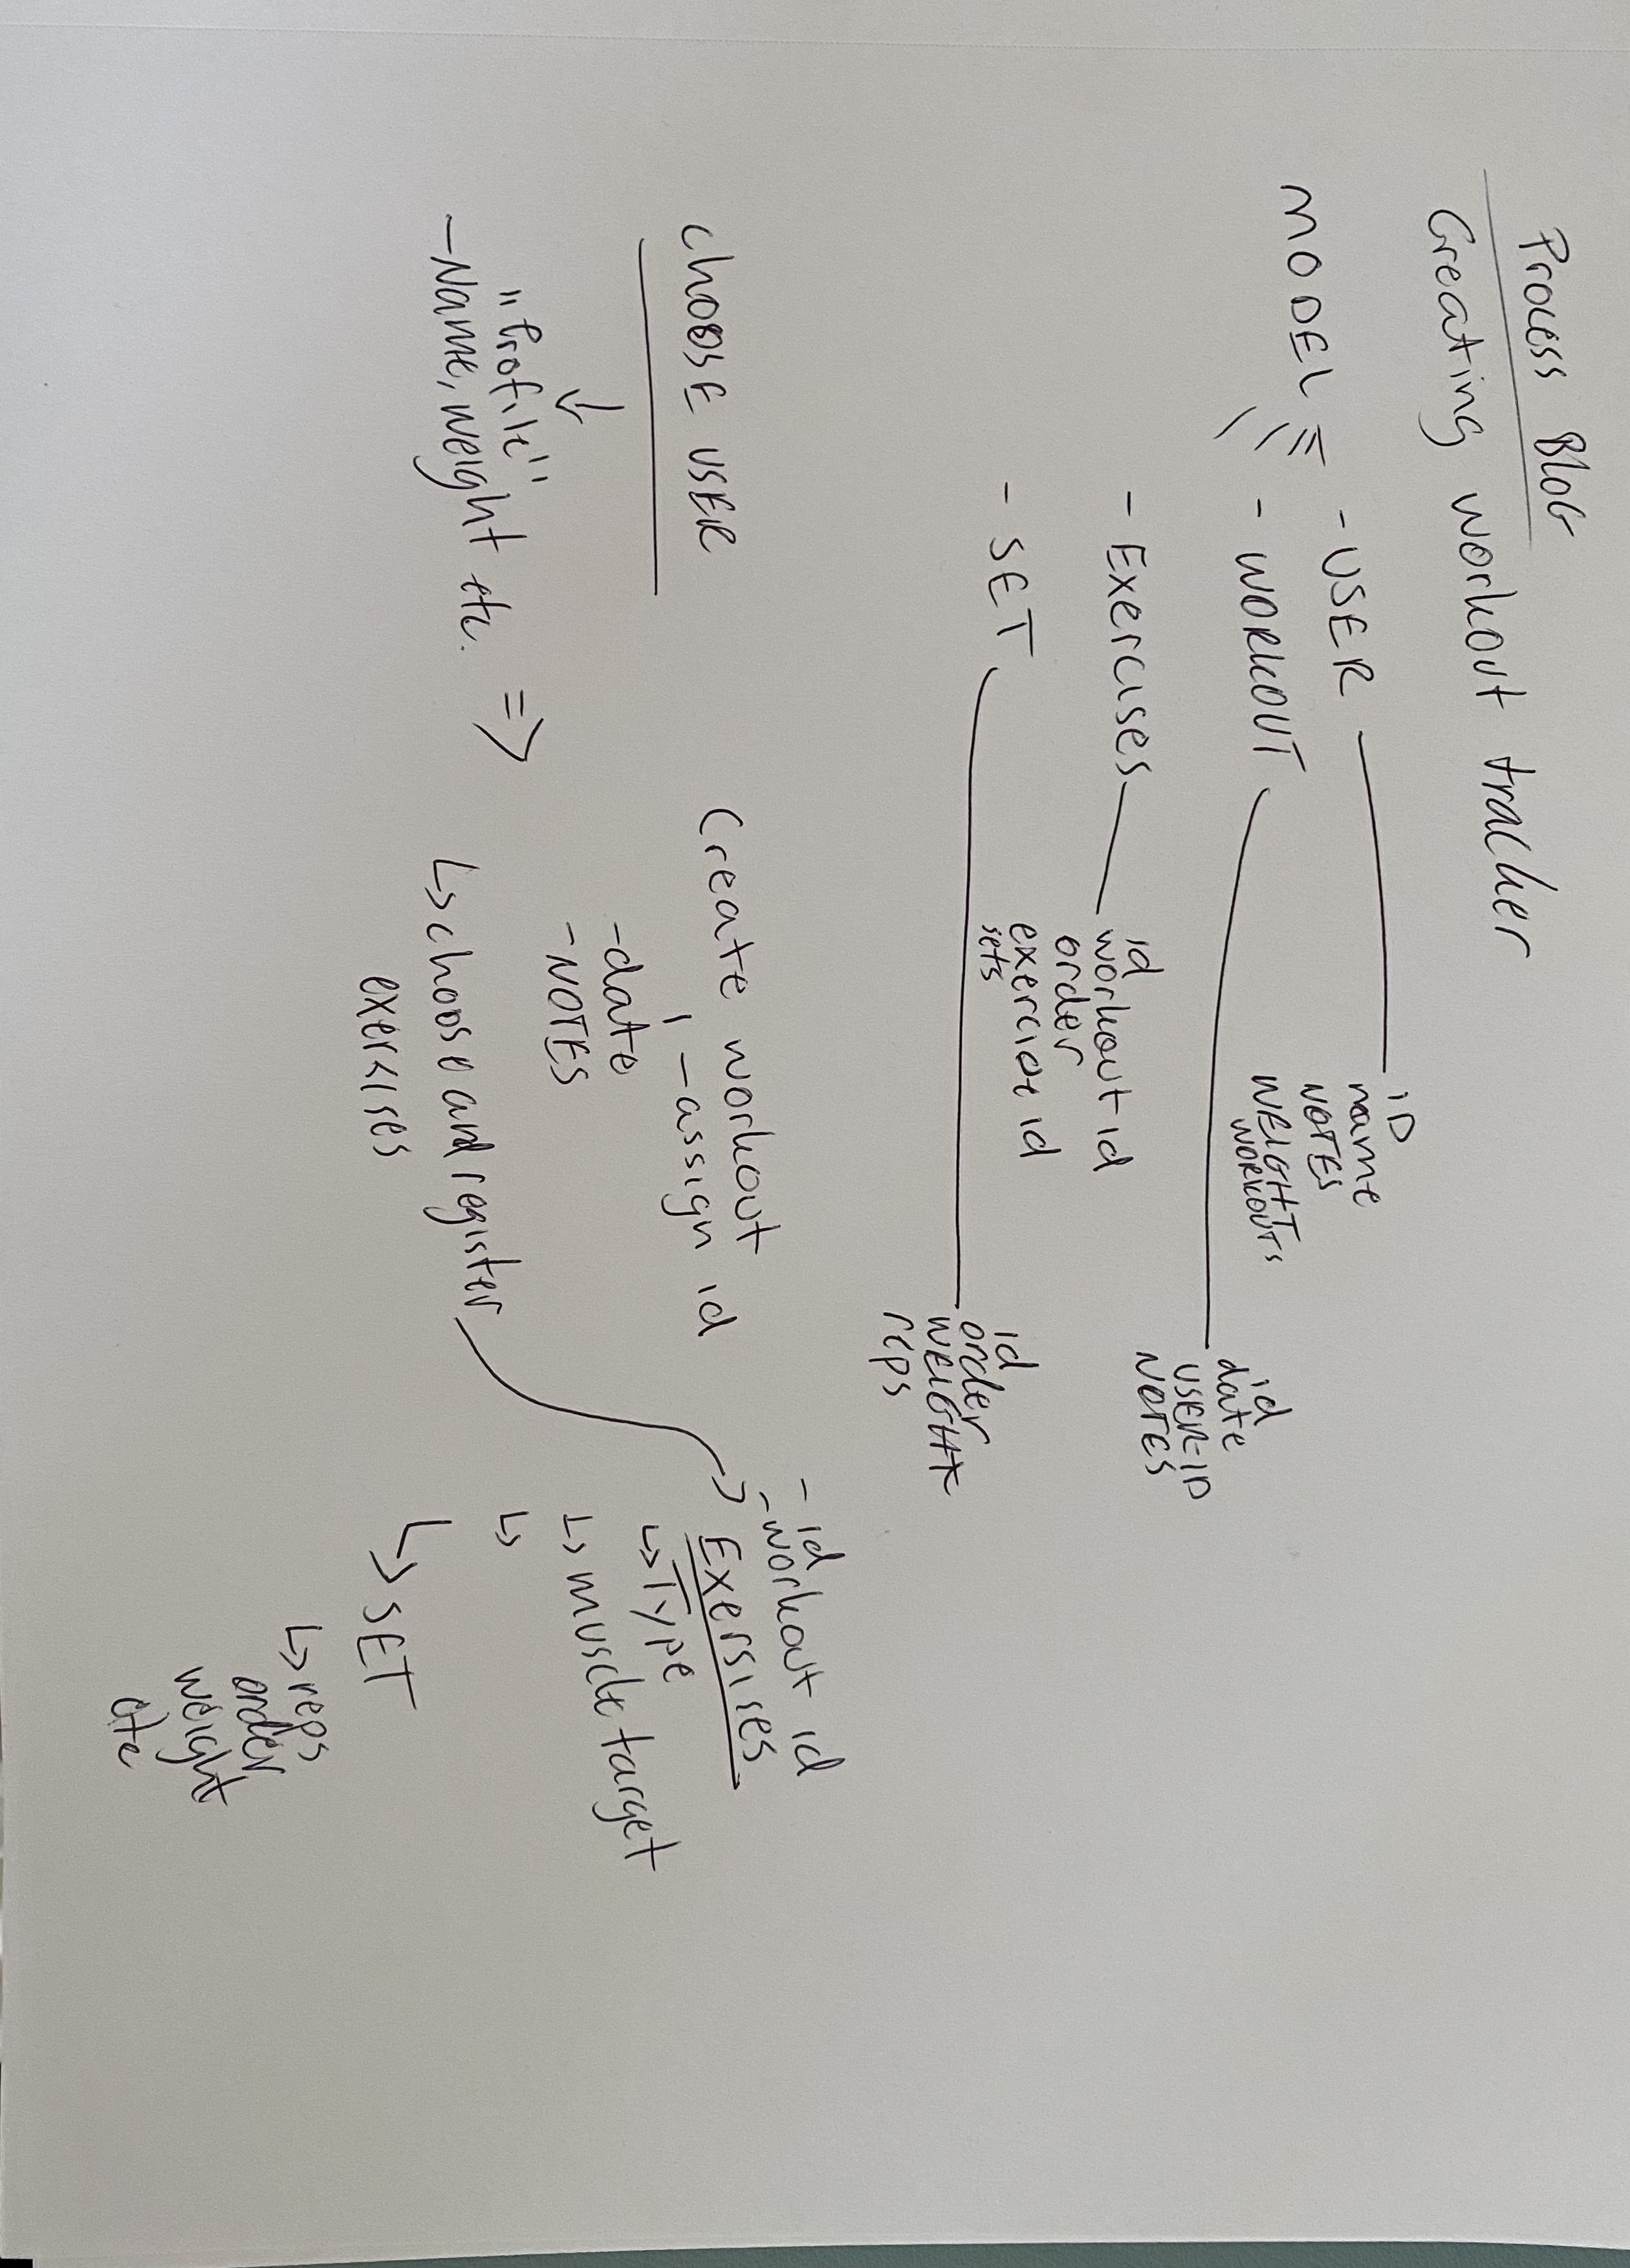 Process BloG
Creating workout tracker
MODEL
- USER
iD
name
NOTES
WEIGHT
WORKOUTS
- WORKOUT
id
date
USER-ID
NOTES
- Exercises
id
workout id
order
exercise id
sets
- SET
id
order
WEIGHT
reps
choose USER
"Profile"
-Name, weight etc. ⇒
Create workout
-assign id
-date
-NOTES
↳ choose and register
exersises
- id
- workout id
Exersises
↳ Type
↳ muscle target
↳
↳ SET
↳ reps
order
weight
etc